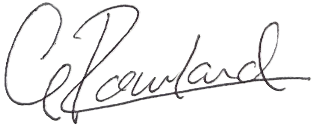 C Rowland